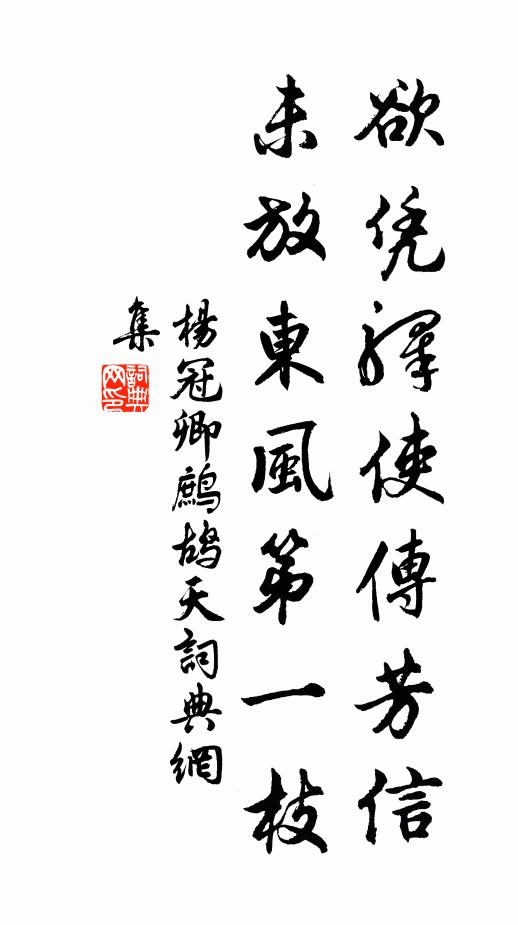 欲凭驛使傳芳信
未放東風第一枝
楊冠卿鷓鴣天詞典網
集
詞典
网印